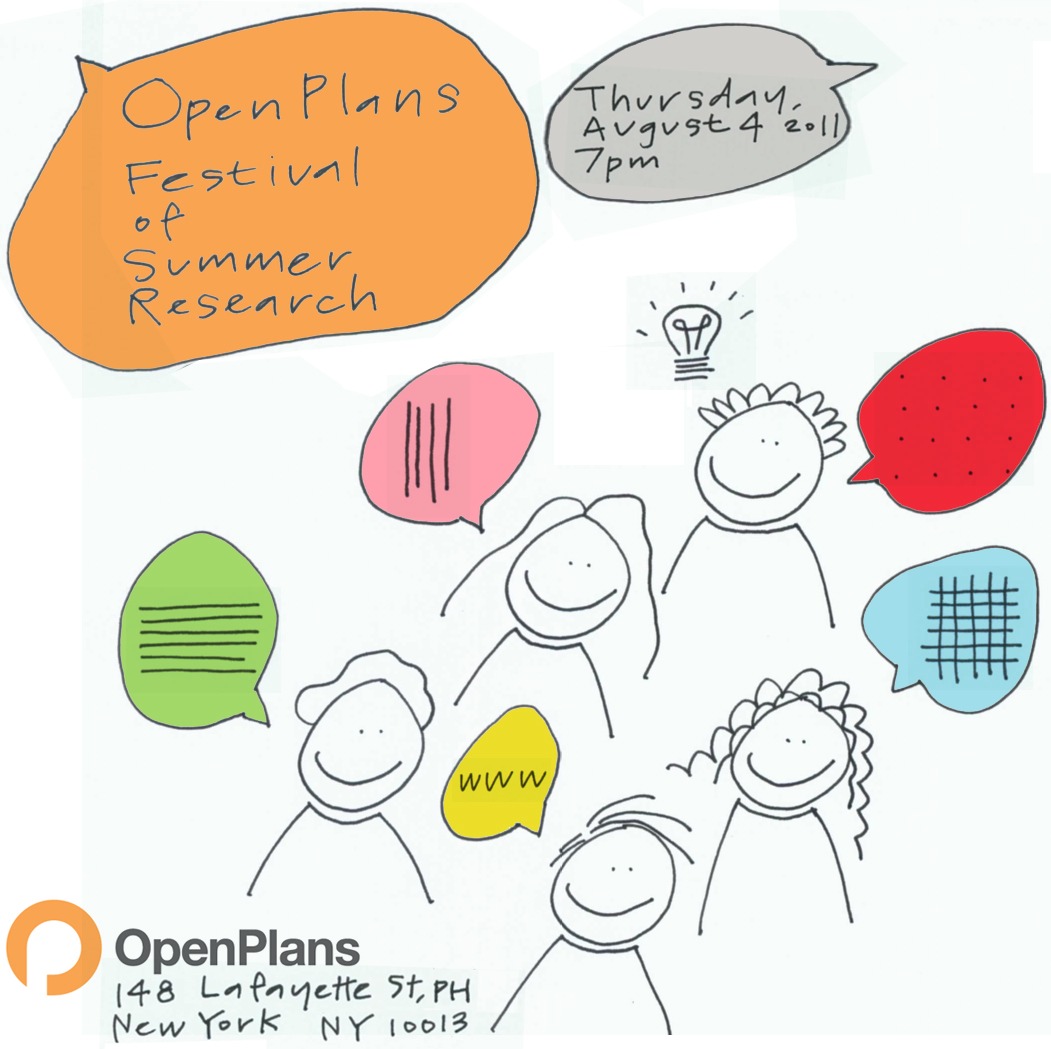 Open Plans
Festival
of
Summer
Research
Thursday,
August 4 2011
7pm
WWW
OpenPlans
148 Lafayette St, PH
New York NY 10013